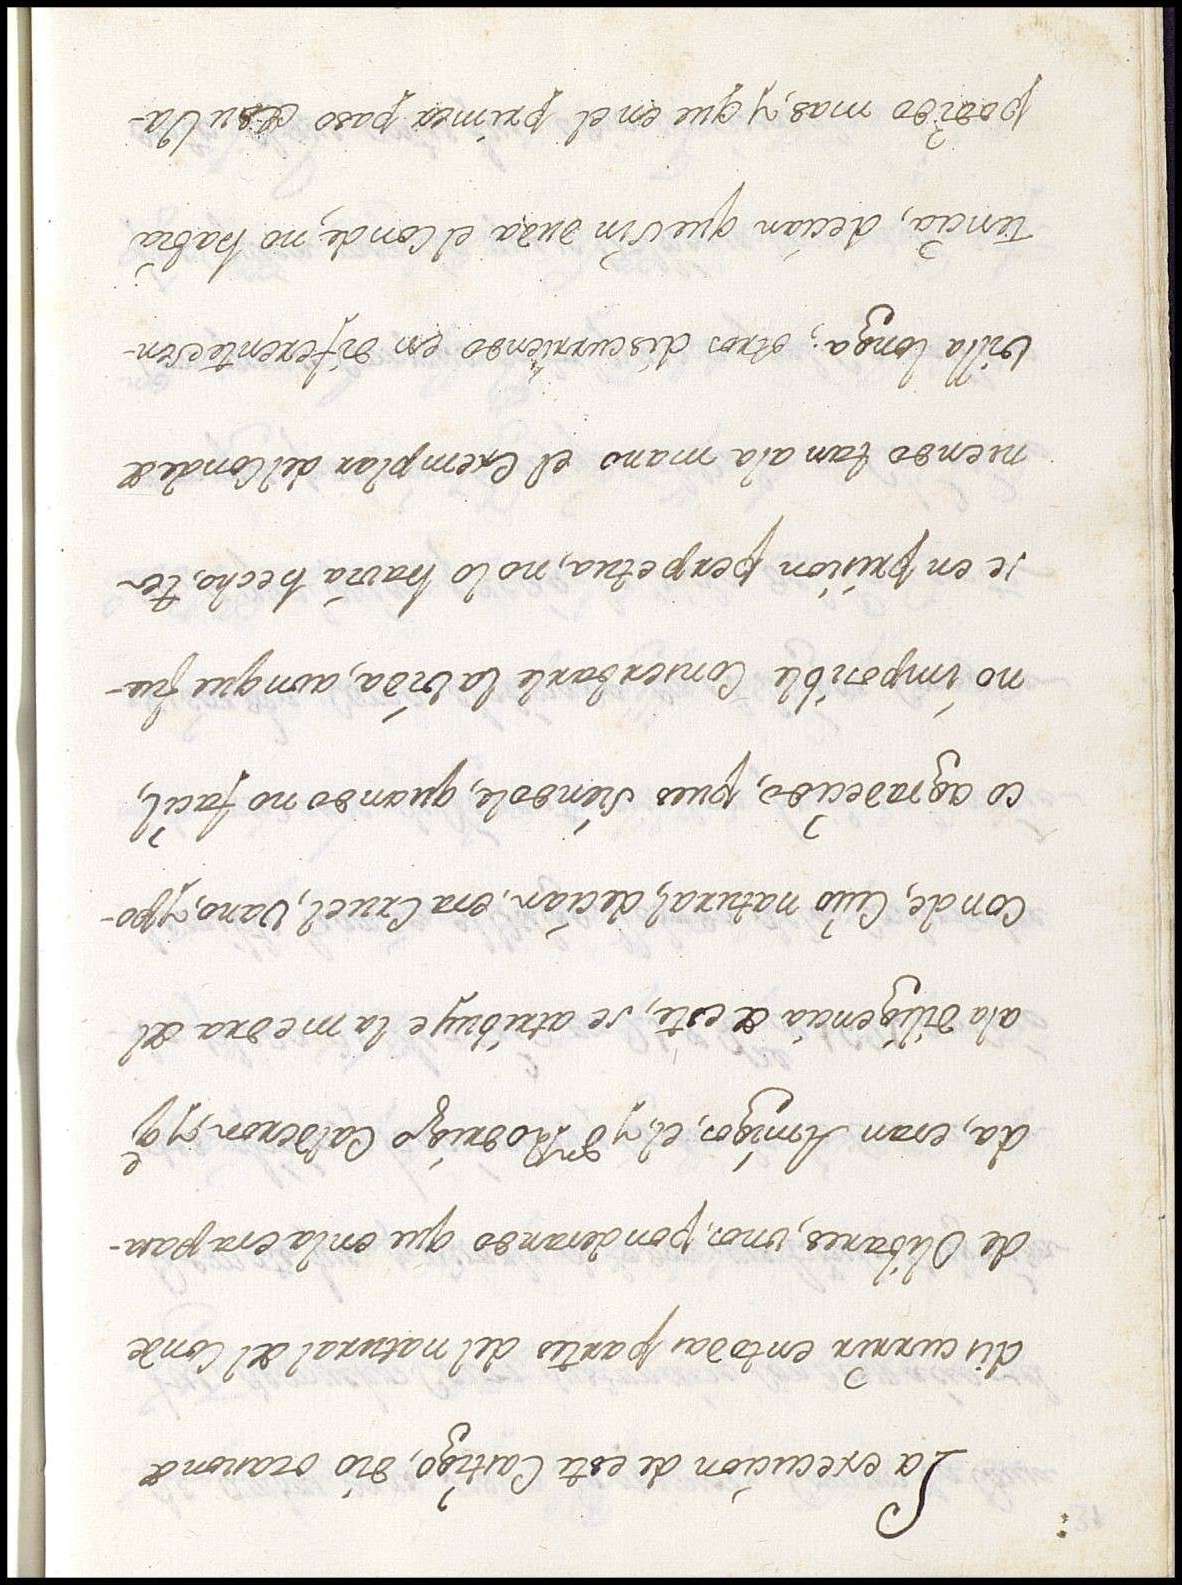 La execucion de este Castigo, dio ocasion de
discurrir en todas partes del natural del Conde
de Olibares, unos, ponderando que en la era pasa-
da, eran Amigos, el, y Dn Rodrigo Calderon, y q̃
a la diligencia de este, se atribuye la medra del
Conde, Cuio natural, decian, era Cruel, Vano, y po-
co agradecido, pues siendole, quando no facil,
no imposible Conserbarle la bida, aunque fue-
se en prision perpetua, no lo havia hecho, te-
niendo tan a la mano el Exemplar del Conde de
Villa longa; otros discurriendo en diferente sen-
tencia, decian que sin duda el Conde, no habra
podido mas, y que en el primer paso de su Va-